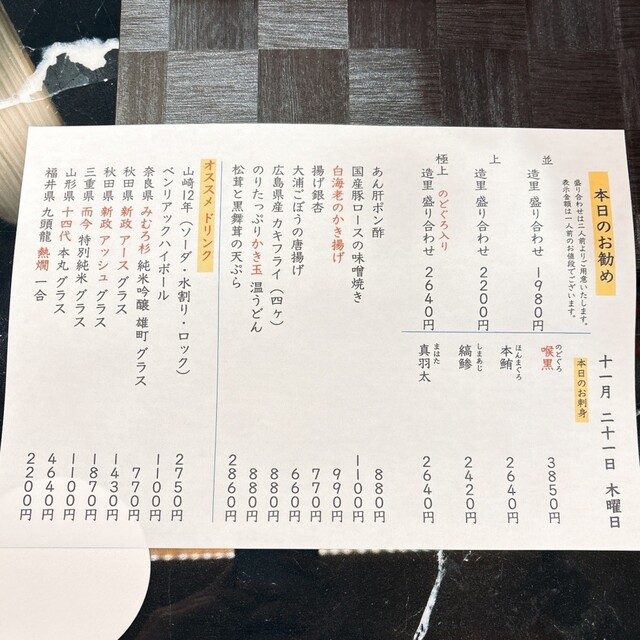 本日のお勧め
十一月 二十一日 木曜日
盛り合わせは二人前よりご用意いたします。
表示金額は一人前のお値段でございます。
並
造里 盛り合わせ 1980円
上
造里 盛り合わせ 2200円
極上 のどぐろ入り
造里 盛り合わせ 2640円
本日のお刺身
喉黒 のどぐろ 3850円
本鮪 ほんまぐろ 2640円
縞鯵 しまあじ 2420円
真羽太 まはた 2640円
あん肝ポン酢 880円
国産豚ロースの味噌焼き 1100円
白海老のかき揚げ 990円
揚げ銀杏 770円
大浦ごぼうの唐揚げ 660円
広島県産 カキフライ（四ヶ） 880円
のりたっぷりかき玉 温うどん 880円
松茸と黒舞茸の天ぷら 2860円
オススメ ドリンク
山崎12年（ソーダ・水割り・ロック） 2750円
ベンリアックハイボール 1100円
奈良県 みむろ杉 純米吟醸 雄町 グラス 770円
秋田県 新政 アース グラス 1430円
秋田県 新政 アッシュ グラス 1870円
三重県 而今 特別純米 グラス 1100円
山形県 十四代 本丸 グラス 4640円
福井県 九頭龍 熱燗 一合 2200円